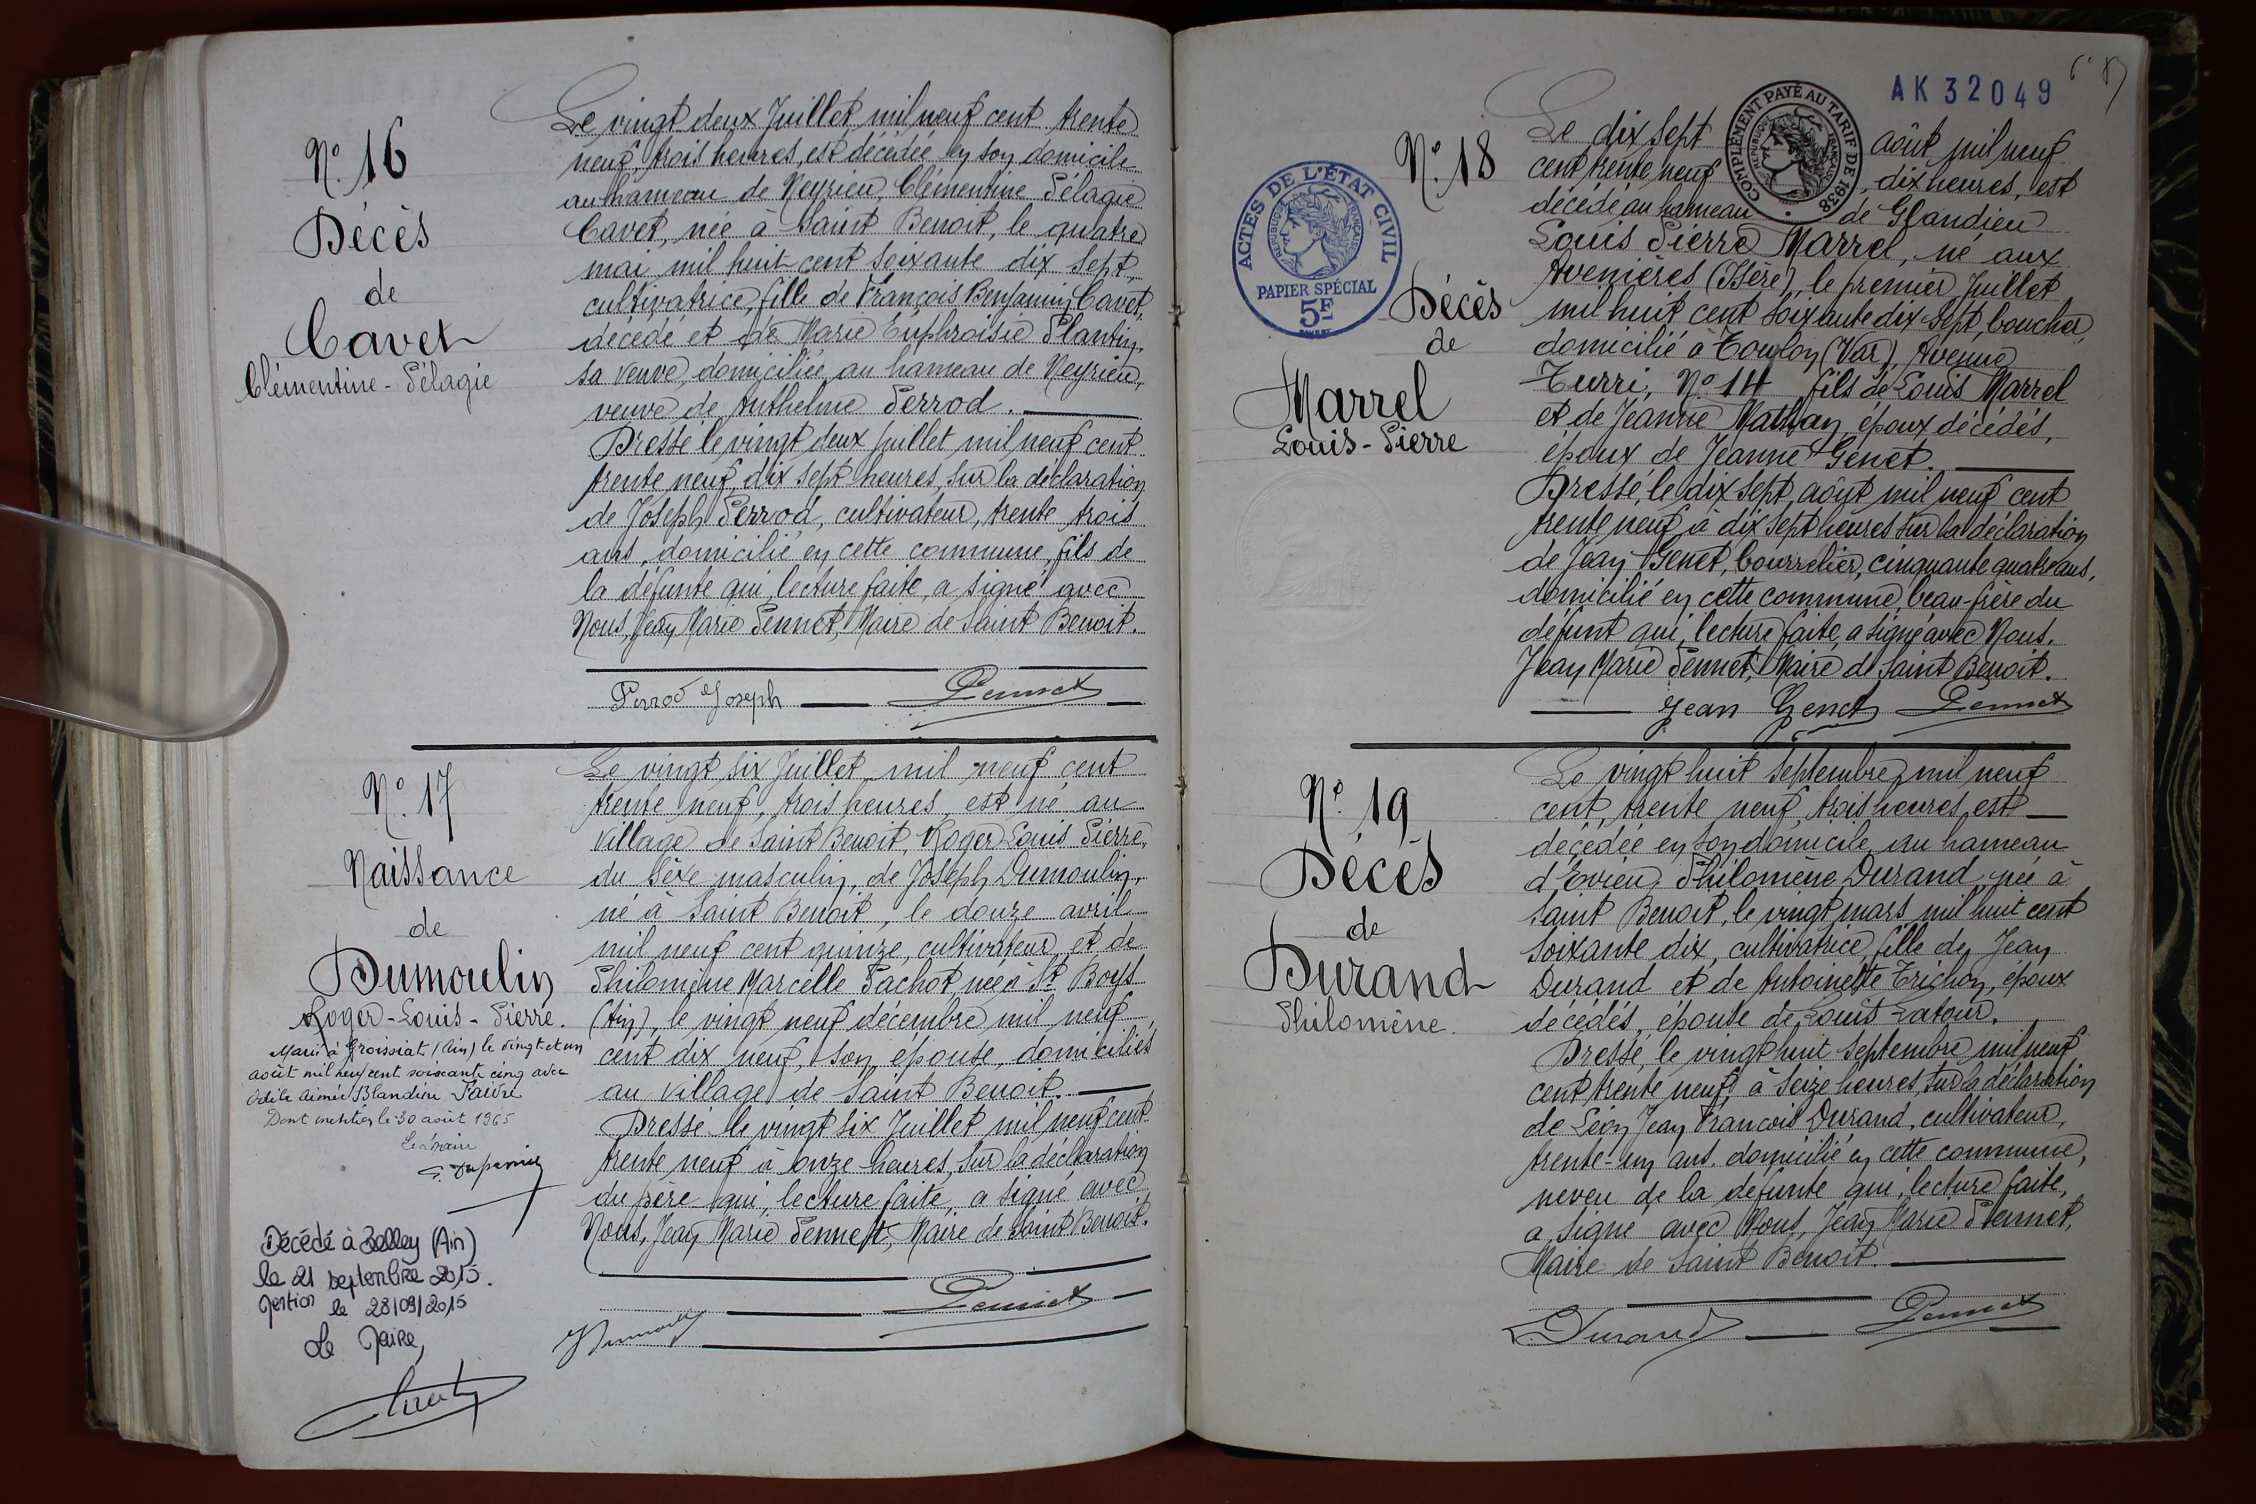 N°. 16
Décès
de
Cavet
Clémentine-Pélagie
Le vingt deux Juillet mil neuf cent trente
neuf, trois heures, est décédée en son domicile
au hameau de Neyrieu, Clémentine Pélagie
Cavet, née à Saint Benoit, le quatre
mai mil huit cent soixante dix sept,
cultivatrice, fille de François Benjamin Cavet,
décédé et de Marie Euphroisie Plantin,
sa veuve, domiciliée au hameau de Neyrieu,
veuve de Anthelme Perrod.
Dressé le vingt deux juillet mil neuf cent
trente neuf, dix sept heures, sur la déclaration
de Joseph Perrod, cultivateur, trente trois
ans, domicilié en cette commune, fils de
la défunte qui, lecture faite, a signé avec
Nous, Jean Marie Pennet, Maire de Saint Benoit.
Perrod Joseph Pennet
N°. 17
Naissance
de
Dumoulin
Roger-Louis-Pierre.
Marié à Groissiat (Ain) le vingt et un
août mil neuf cent soixante cinq avec
Odile Aimée Blandine Faivre
Dont mention le 30 août 1965
Le maire
Décédé à Belley (Ain)
le 21 septembre 2015.
mention le 28/09/2015
Le Maire,
Le vingt six Juillet mil neuf cent
trente neuf, trois heures, est né au
Village de Saint Benoit, Roger Louis Pierre,
du sexe masculin, de Joseph Dumoulin,
né à Saint Benoit, le douze avril
mil neuf cent quinze, cultivateur, et de
Philomène Marcelle Pachot, née à St Boys
(Ain), le vingt neuf décembre mil neuf
cent dix neuf, son épouse, domiciliés
au Village de Saint Benoit.
Dressé le vingt six Juillet mil neuf cent
trente neuf à onze heures, sur la déclaration
du père qui, lecture faite, a signé avec
Nous, Jean Marie Pennet, Maire de Saint Benoit.
J Dumoulin Pennet
AK 32049
COMPLÉMENT PAYÉ AU TARIF DE 1938
RÉPUBLIQUE FRANÇAISE
ACTES DE L'ÉTAT CIVIL
RÉPUBLIQUE FRANÇAISE
PAPIER SPÉCIAL
5F
N°. 18
Décès
de
Marrel
Louis-Pierre
Le dix sept août mil neuf
cent trente neuf, dix heures, est
décédé au hameau de Glandieu
Louis Pierre Marrel, né aux
Avenières (Isère), le premier Juillet
mil huit cent soixante dix sept, boucher,
domicilié à Toulon (Var), Avenue
Turri, N° 14 fils de Louis Marrel
et de Jeanne Mathan, époux décédés,
époux de Jeanne Genet.
Dressé, le dix sept août mil neuf cent
trente neuf à dix sept heures sur la déclaration
de Jean Genet, bourrelier, cinquante quatre ans,
domicilié en cette commune, beau-frère du
défunt qui, lecture faite, a signé avec Nous,
Jean Marie Pennet, Maire de Saint Benoit.
Jean Genet Pennet
N°. 19
Décès
de
Durand
Philomène.
Le vingt huit Septembre mil neuf
cent, trente neuf, trois heures, est
décédée en son domicile au hameau
d'Evieu, Philomène Durand, née à
Saint Benoit, le vingt mars mil huit cent
soixante dix, cultivatrice, fille de Jean
Durand et de Antoinette Trichon, époux
décédés, épouse de Louis Latour.
Dressé, le vingt huit Septembre mil neuf
cent trente neuf, à seize heures, sur la déclaration
de Léon Jean François Durand, cultivateur,
trente-un ans, domicilié en cette commune,
neveu de la défunte qui, lecture faite,
a signé avec Nous, Jean Marie Pennet,
Maire de Saint Benoit.
L. Durand Pennet